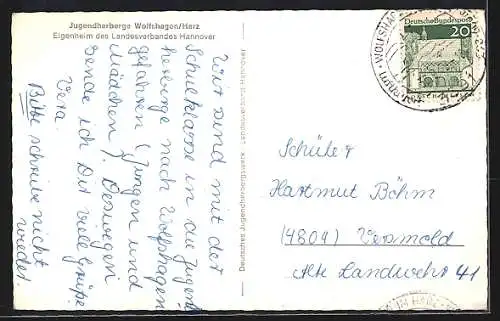 Jugendherberge Wolfshagen/Harz
Eigenheim des Landesverbandes Hannover
Wir sind mit der
Schulklasse in die Jugend
herberge nach Wolfshagen
gefahren (Jungen und
Mädchen). Deswegen
sende ich Dir viele Grüße
Vera.
Bitte schreibe nicht
wieder.
Deutsches Jugendherbergswerk Landesverband Hannover
Deutsche Bundespost
20
Schüler
Hartmut Böhm
(4804) Versmold
Alte Landwehr 41